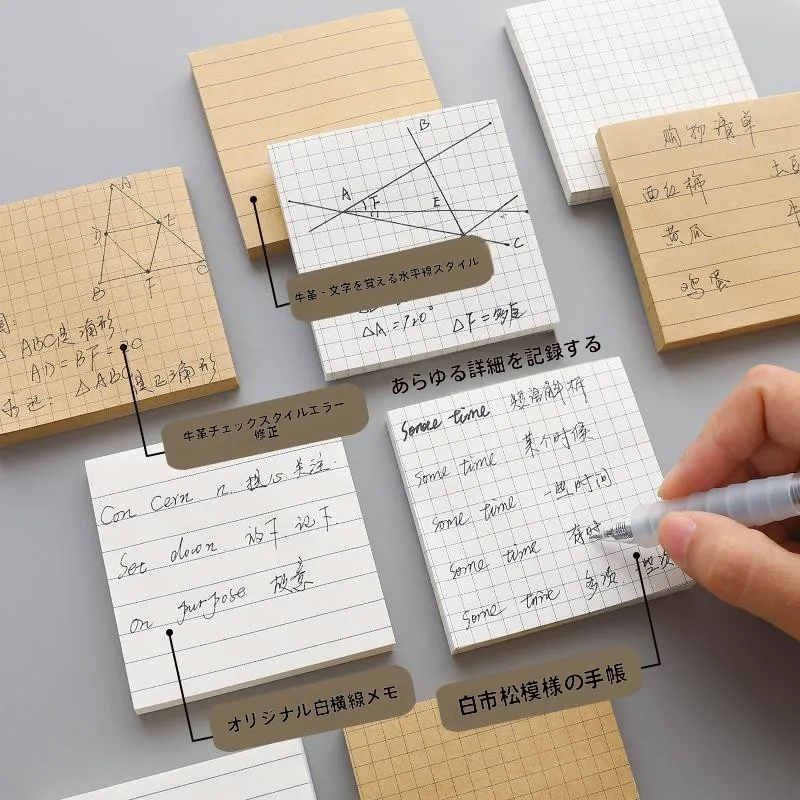 购物清单
西红柿
土豆
黄瓜
鸡蛋
B
A
F
E
C
牛革・文字を覚える水平線スタイル
△A=120°
A
D
E
B
F
C
△ABC是三角形,
AD=BF=
牛革チェックスタイルエラー
修正
あらゆる詳細を記録する
Some time 短语解析
Some time 某个时候
Some time 一些时间
Some time 有时
Some time 多次
Con cern n. 担心.关注.
Set down 放下.记下.
on purpose 故意
オリジナル白横線メモ
白市松模様の手帳